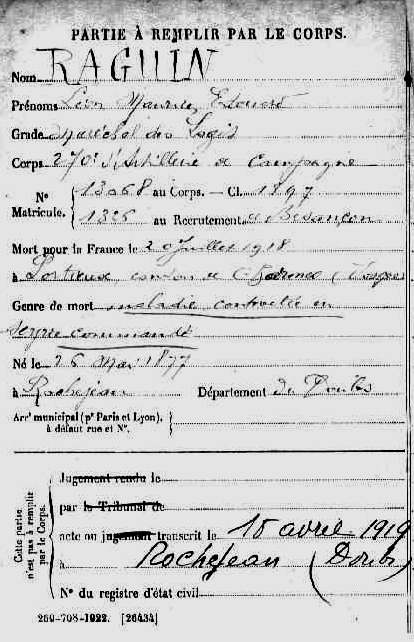 PARTIE À REMPLIR PAR LE CORPS.
Nom RAGUIN
Prénoms Léon Maurice Edouard
Grade Maréchal des Logis
Corps 270e d'Artillerie de Campagne
N° Matricule. 13068 au Corps. — Cl. 1897
1326 au Recrutement de Besançon
Mort pour la France le 20 Juillet 1918
à canton de (Vosges)
Genre de mort maladie contractée en
service commandé
Né le 26 Mai 1877
à Rochejean Département du Doubs
Arrt municipal (pr Paris et Lyon),
à défaut rue et N°.
Cette partie n'est pas à remplir par le Corps.
Jugement rendu le
par le Tribunal de
acte ou jugement transcrit le 15 avril 1919
à Rochejean (Doubs)
N° du registre d'état civil
269-708-1922. [26434]